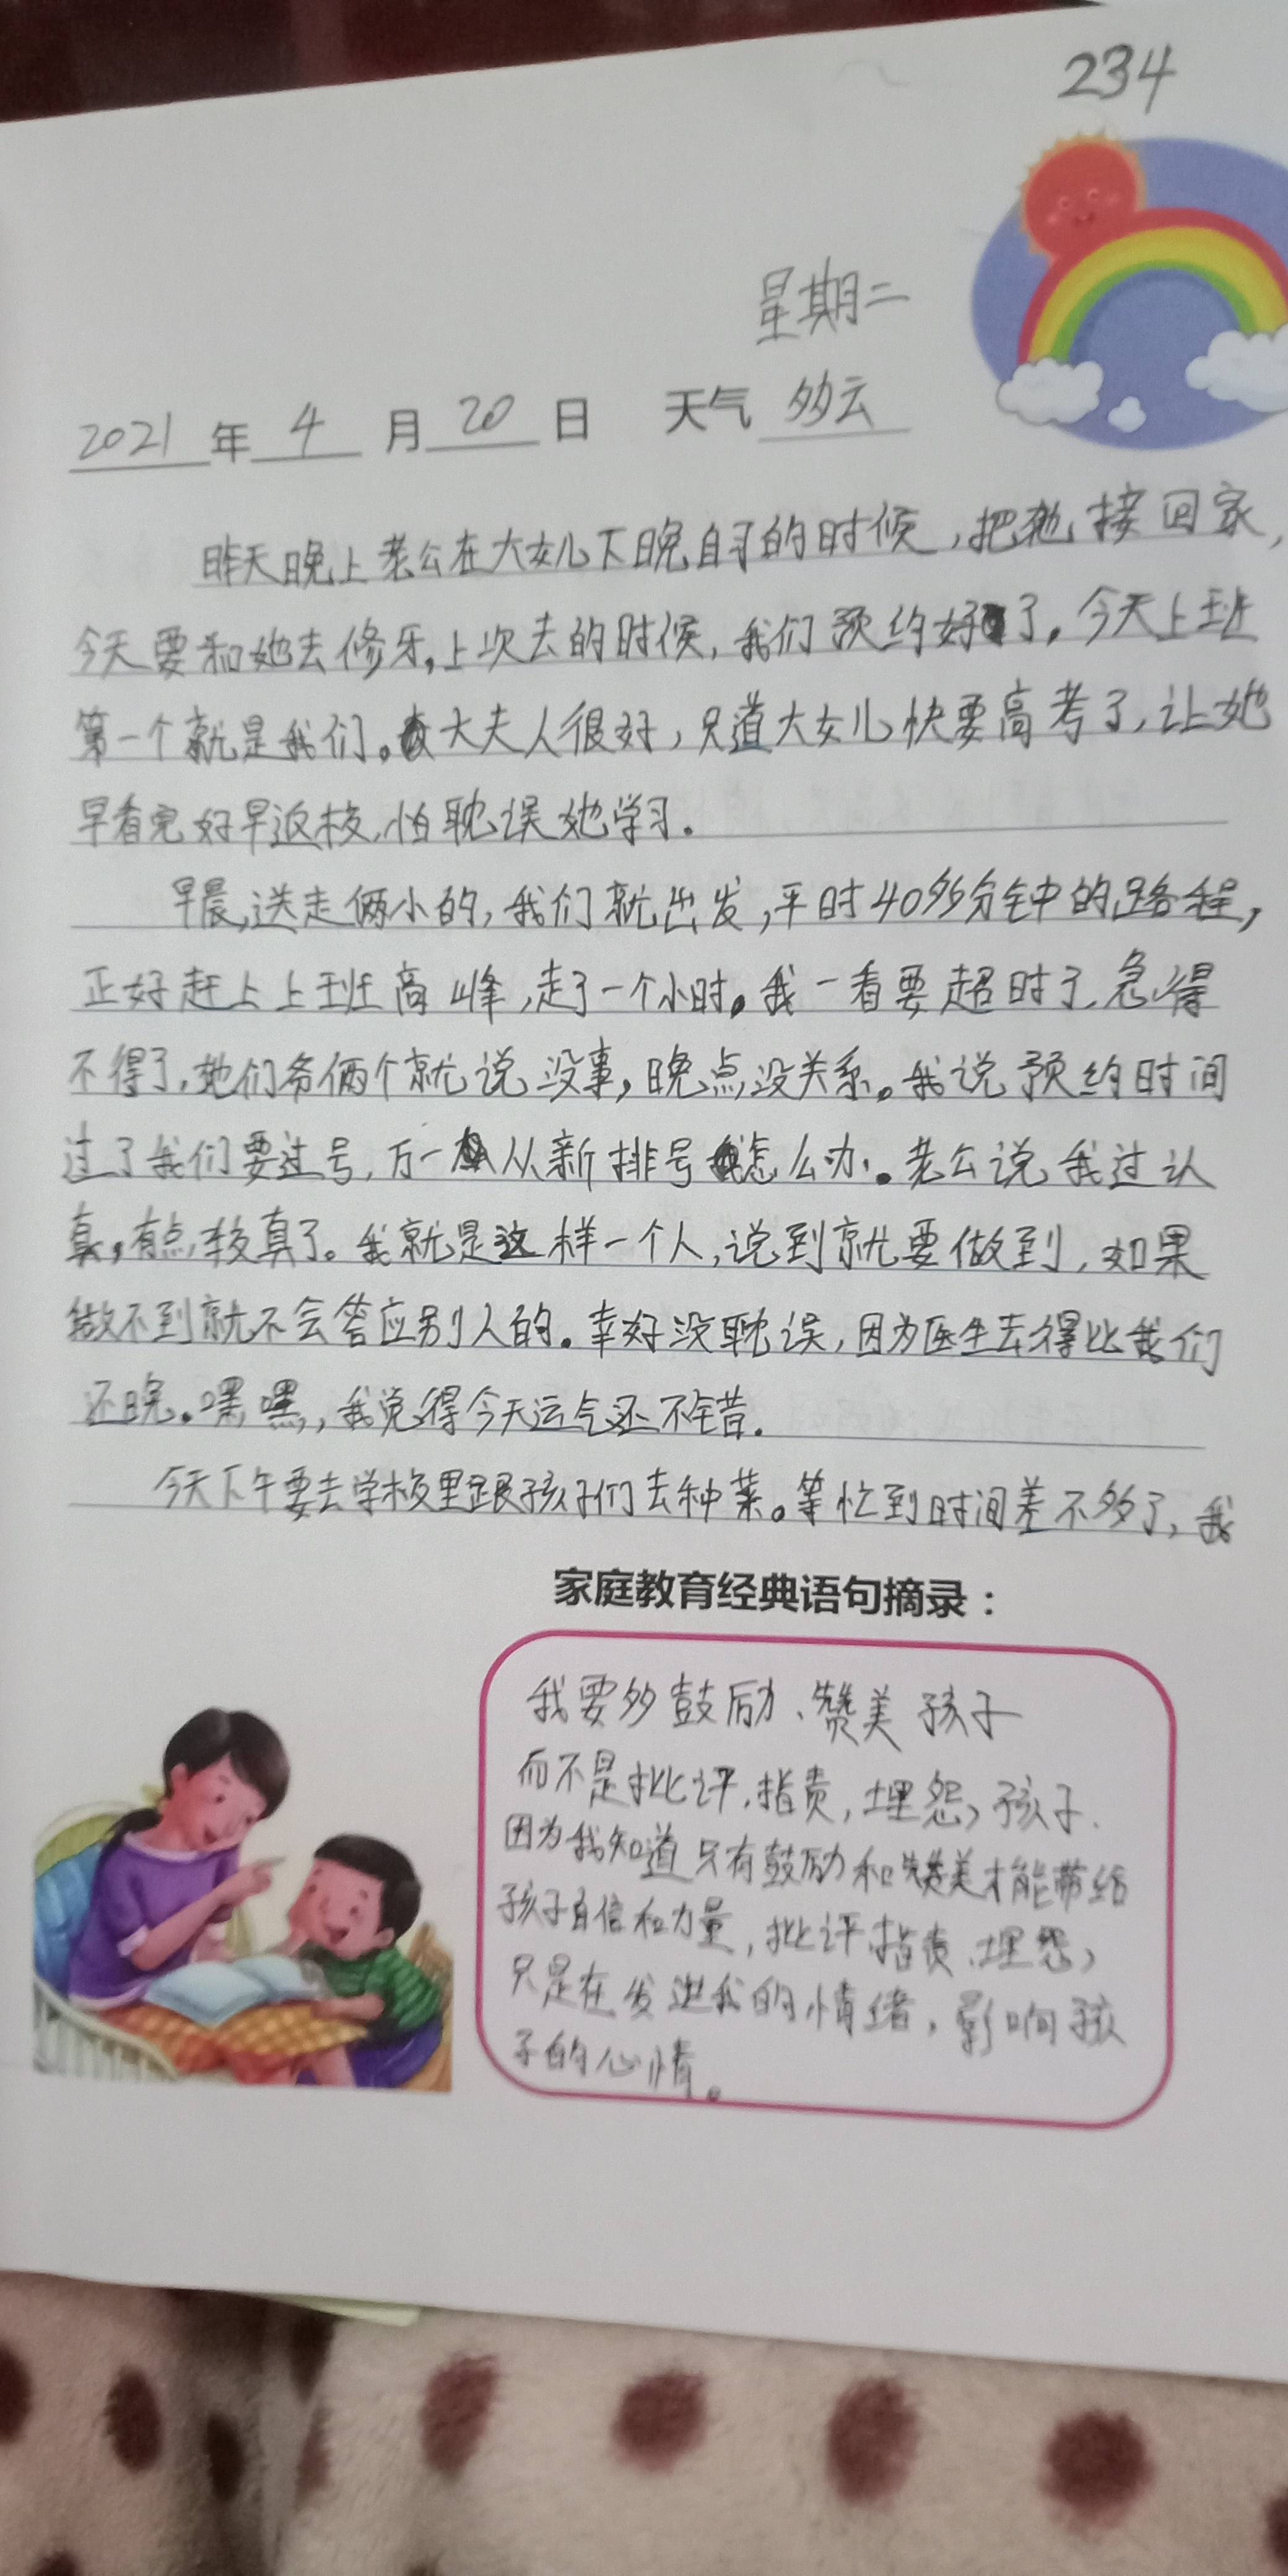 234
星期二
2021年4月20日 天气多云
昨天晚上老公在大女儿下晚自习的时候,把她接回家,
今天要和她去修牙,上次去的时候,我们预约好了。今天上班
第一个就是我们。大夫人很好,只道大女儿快要高考了,让她
早看完好早返校,怕耽误她学习.
早晨,送走俩小的,我们就出发,平时40多分钟中的路程,
正好赶上上班高峰,走了一个小时。我一看要超时了,急得
不得了,她们爷俩个就说没事,晚点没关系。我说预约时间
过了我们要过号,万一从新排号怎么办。老公说我过认
真,有点较真了。我就是这样一个人,说到就要做到,如果
做不到就不会答应别人的。幸好没耽误,因为医生去得比我们
还晚。嘿嘿,我觉得今天运气还不错.
今天下午要去学校里跟孩子们去种菜。等忙到时间差不多了,我
家庭教育经典语句摘录:
我要多鼓励、赞美孩子
而不是批评,指责,埋怨孩子.
因为我知道只有鼓励和赞美才能带给
孩子自信和力量,批评指责、埋怨
只是在发泄我的情绪,影响孩
子的心情。